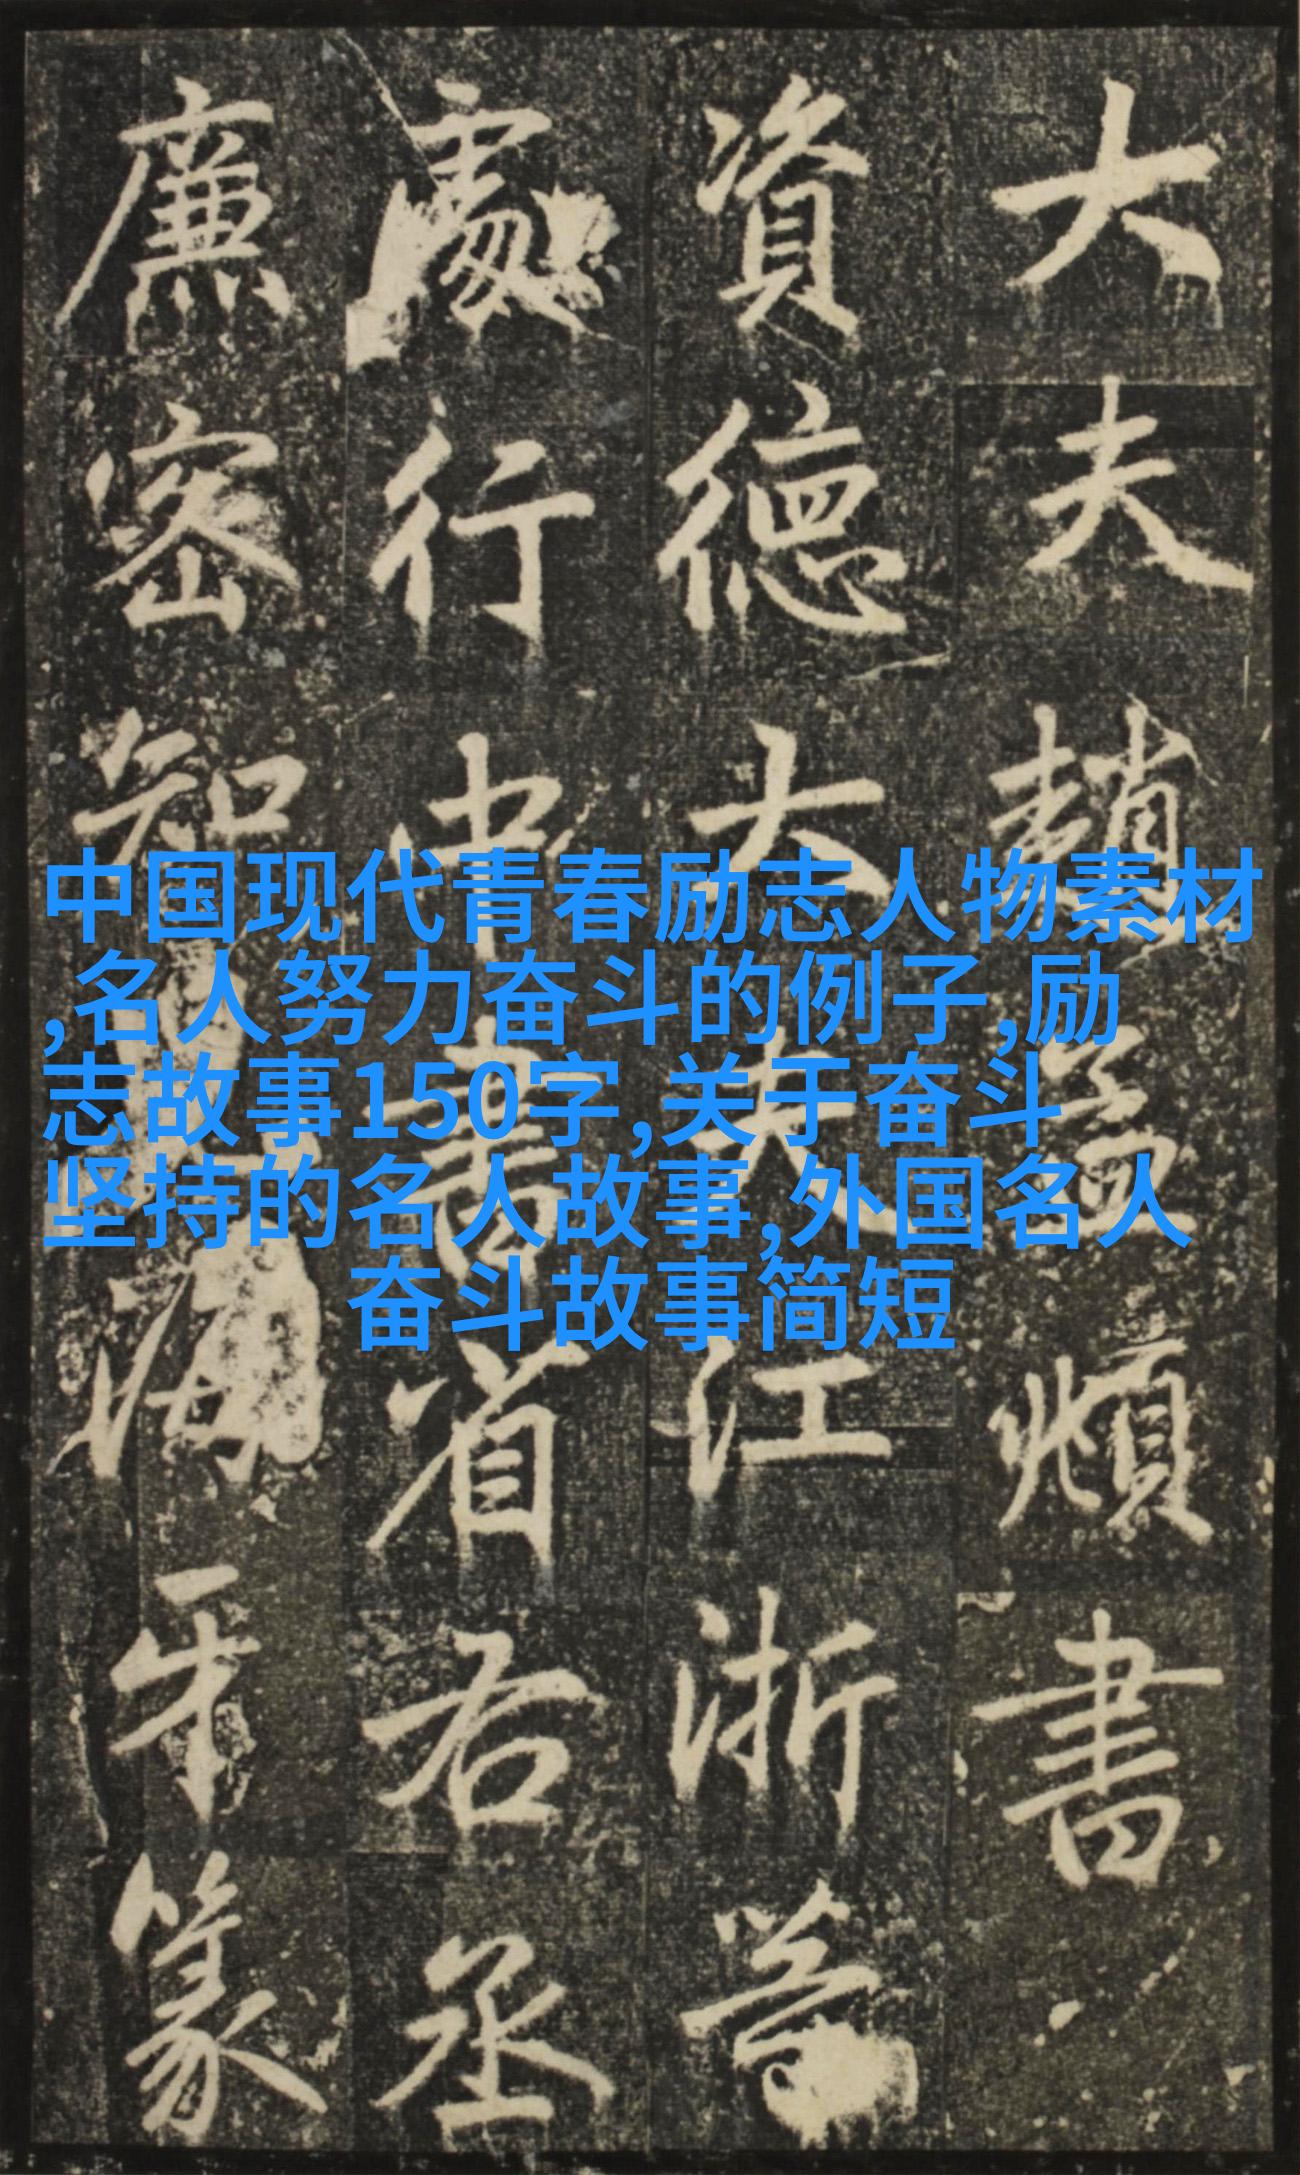 大夫趙孟頫書
資德大夫江浙等
處行中書省右丞
廉密知海牙篆
中国现代青春励志人物素材
,名人努力奋斗的例子,励
志故事150字,关于奋斗
坚持的名人故事,外国名人
奋斗故事简短